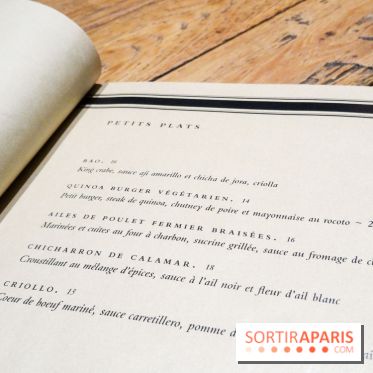 PETITS PLATS
BAO. 16
King crabe, sauce aji amarillo et chicha de jora, criolla
QUINOA BURGER VÉGÉTARIEN. 14
Petit burger, steak de quinoa, chutney de poire et mayonnaise au rocoto ~ 2
AILES DE POULET FERMIER BRAISÉES. 16
Marinées et cuites au four à charbon, sucrine grillée, sauce au fromage de
CHICHARRON DE CALAMAR. 18
Croustillant au mélange d'épices, sauce à l'ail noir et fleur d'ail blanc
CRIOLLO. 13
Coeur de boeuf mariné, sauce carretillero, pomme
SORTIRAPARIS
.COM